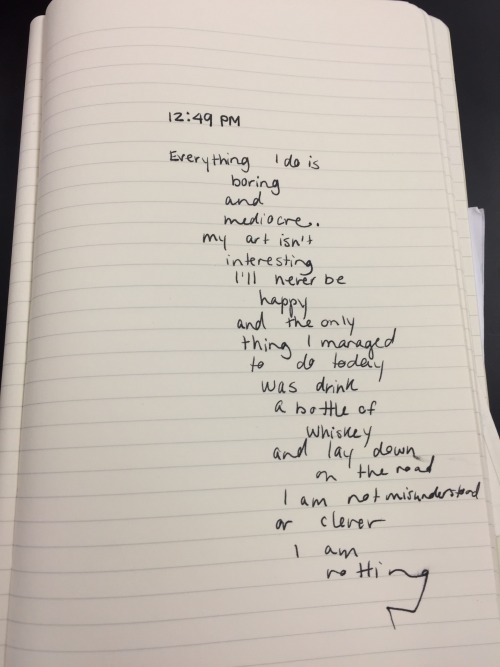 12:49 PM
Everything I do is
boring
and
mediocre.
my art isn't
interesting
I'll never be
happy
and the only
thing I managed
to do today
was drink
a bottle of
whiskey
and lay down
on the road
I am not misunderstood
or clever
I am
rotting